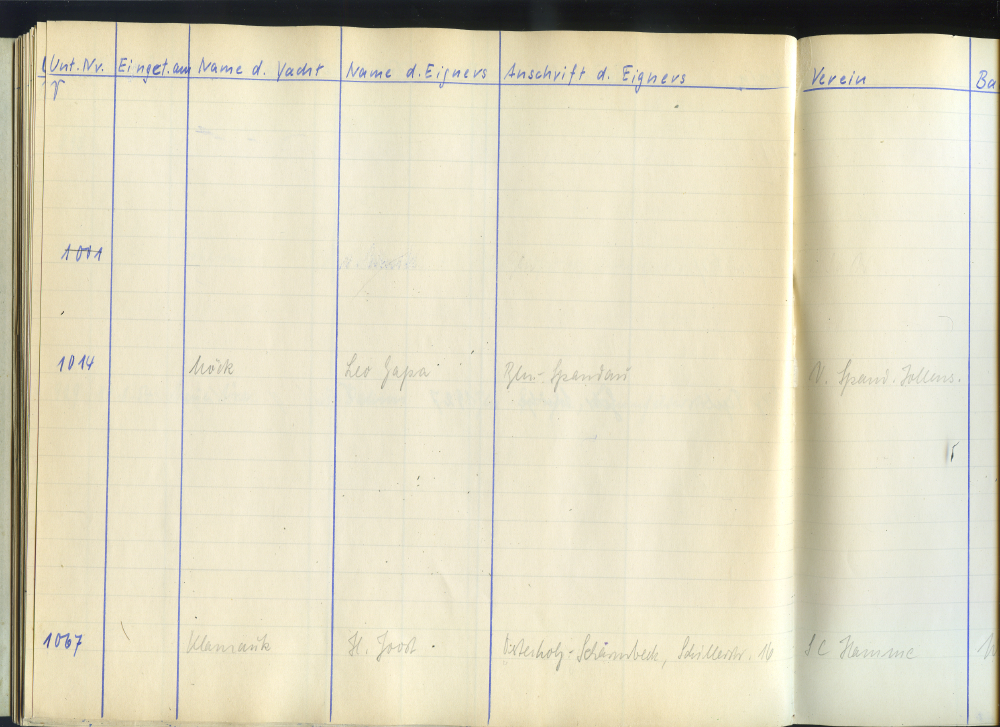 Unt.Nr. Einget.am Name d. Yacht Name d. Eigners Anschrift d. Eigners Verein Ba
1011
1014 Möck Leo Gapa Bln.-Spandau V. Spand. Jollens.
1067 Klamauk H. Joost Osterholz-Scharmbeck, Schillerstr. 16 SC Hamme